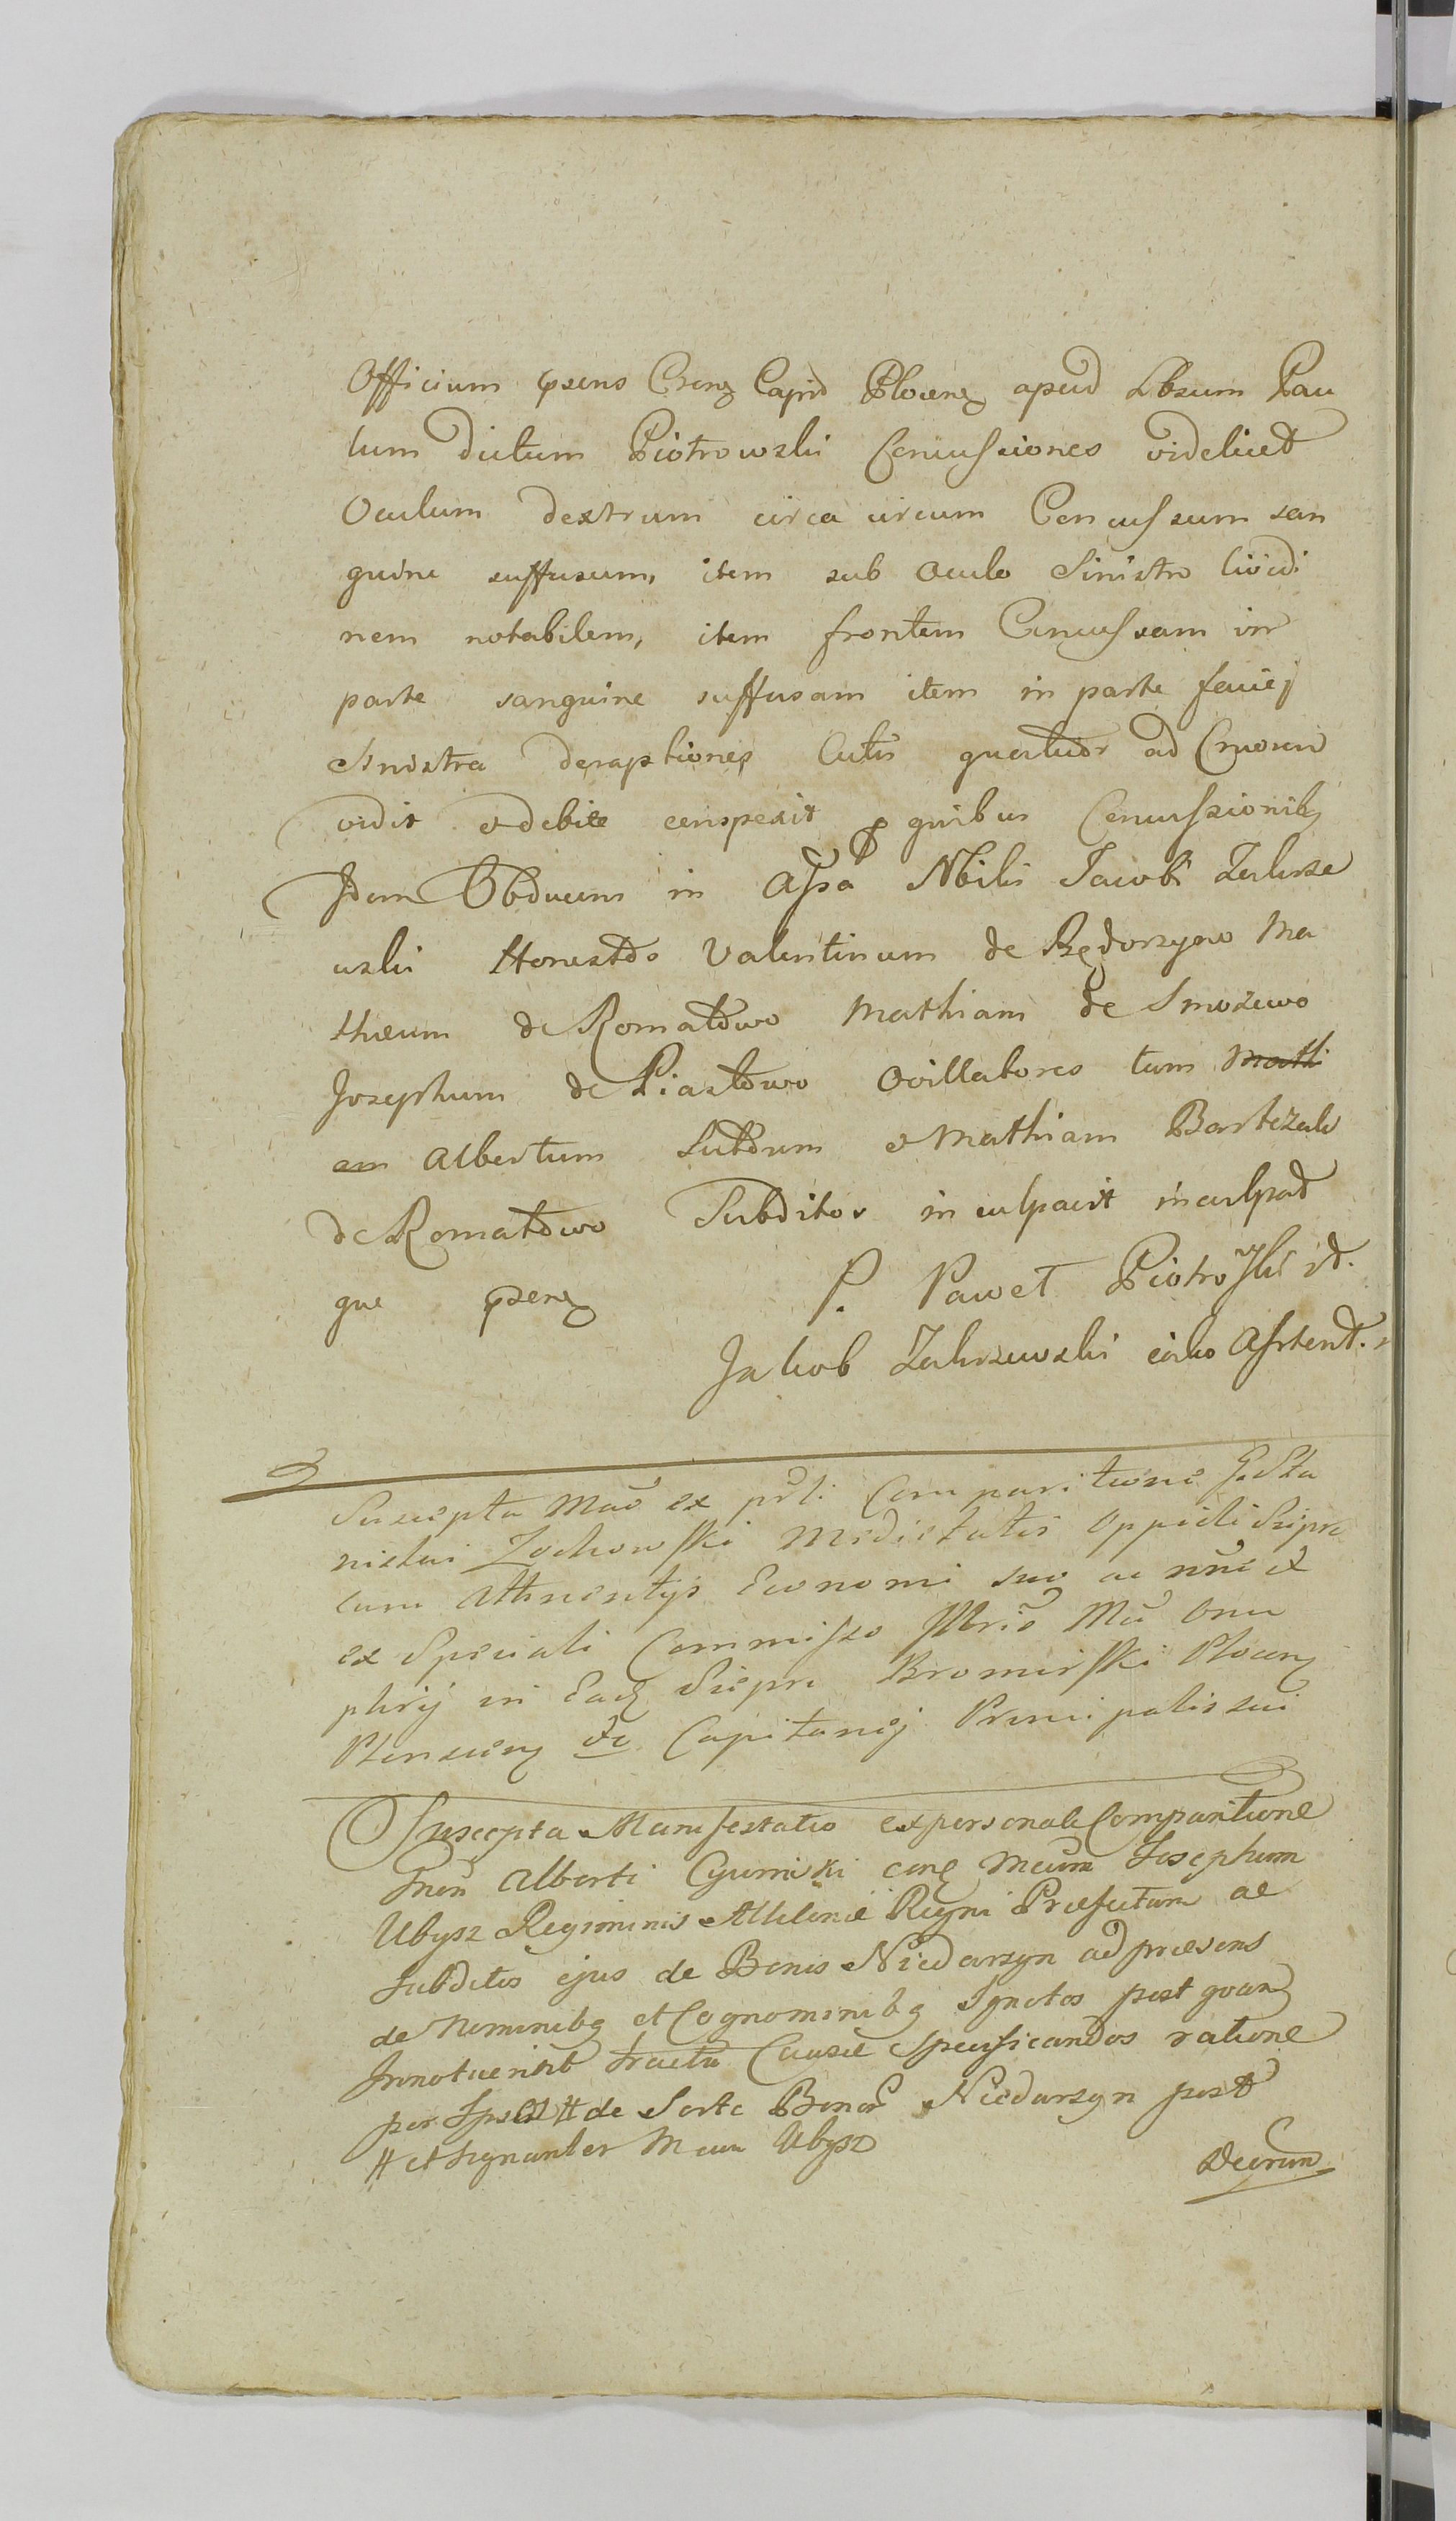 Officium psens Crens Capnd Plocens apud Lbsum Pau
lum dictum Piotrowski Concussiones videlicet
Oculum dextrum circa circum Concussum san
guine suffusum, item sub Oculo Sinistro lividi
nem notabilem, item frontem Concussam in
parte sanguine suffusam item in parte faciej
Sinistra deraptiones Cutis quatuor ad Cruorem
vidit et debite conspexit p quibus Concussionibq
Idem Obducens in Assa Nbilis Jacobi Zakrze
wski Honestos Valentinum de Rędorzyno Ma
thæum de Romatowo Mathiam de Smozewo
Josephum de Piastowo Ovillatores tum Math
am Albertum Sutorum et Mathiam Bartczak
de Romatowo Subditos inculpavit inculpat
que psens P. Paweł Piotroski
Jakob Zakrzewski iako Assstent.
Suscepta Mao ex prli Comparitione Gsi Sta
nislai Zochowski Medietatis Oppidi Sierpc
cum Attinentijs Economi suo ac nne et
ex Speciali Commisso Mci Onu
phrij in Sierpc Bromirski Plocens
&c Capitanej Principalis sui
Suscepta Manifestatio ex personali Comparitione
Gnsi Alberti Cyumiski con Mcum Josephum
Ubysz Regiminis Militiæ Regni Præfectum ac
Subditos ejus de Bonis Niedarzyn ad præsens
de Nominibq et Cognominibq Ignotos post quam
Innotuerint tractu Causæ Specificandos ratione
per Ipsos # de Sorte Bonor Niedarzyn post
# et signanter Mcum Ubysz
Decrum